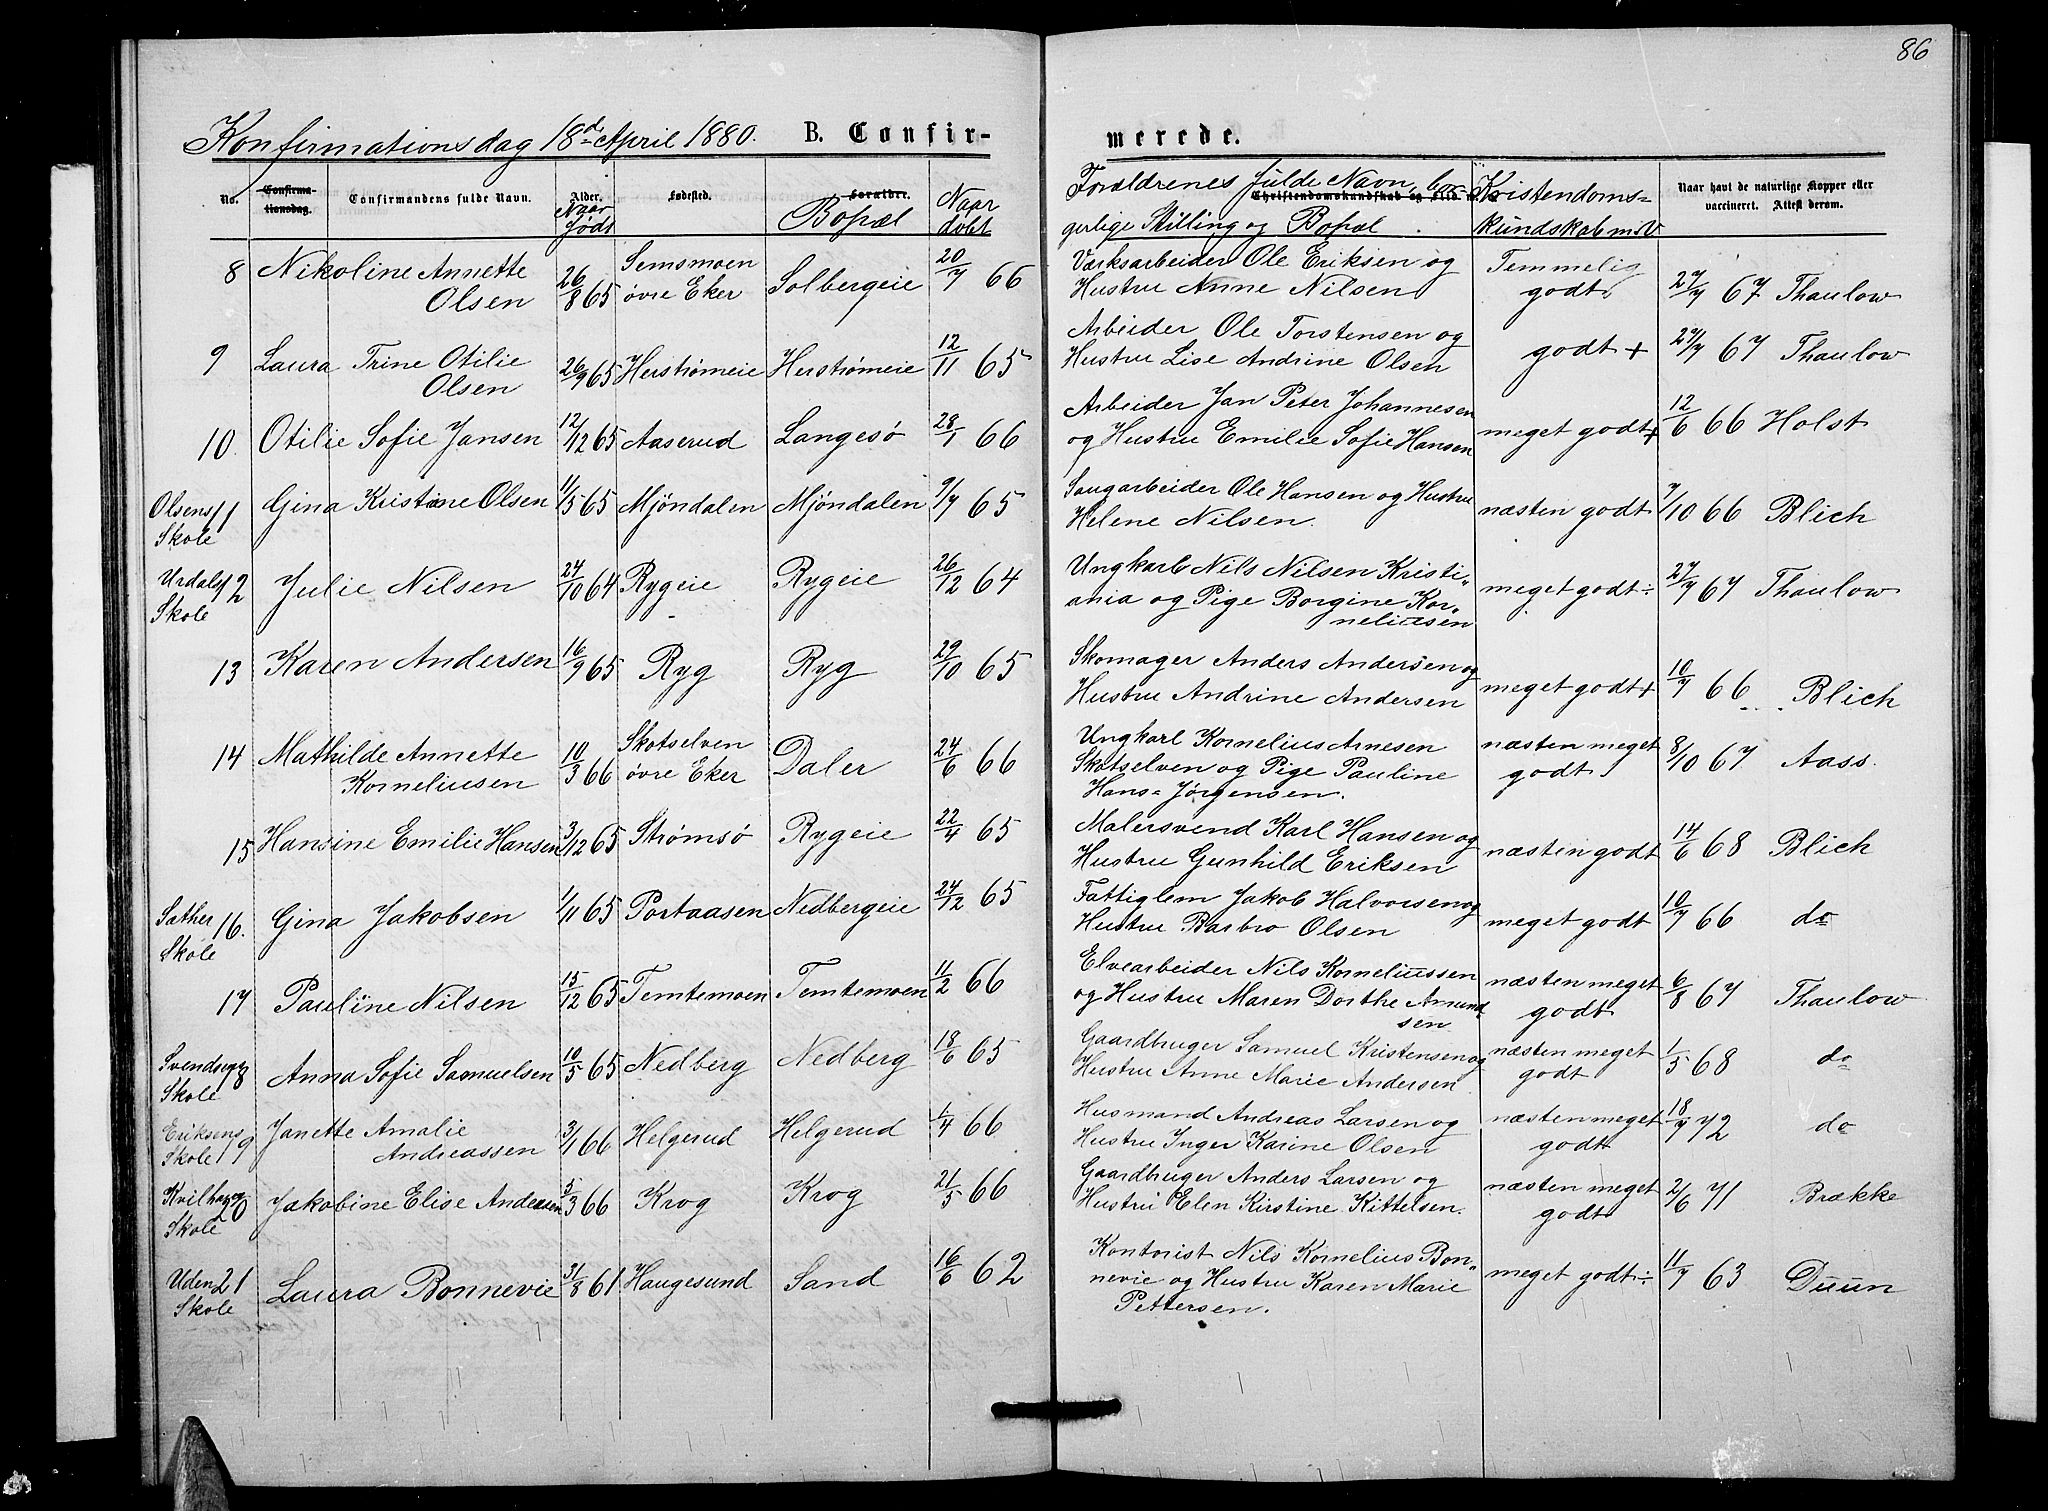 86
Konfirmationsdag 18de April 1880. B. Confirmerede.
No. Confirmationsdag. Confirmandens fulde Navn. Alder. Naar født Fødested. Forældre. Bopæl Naar døbt Forældrenes fulde Navn, borgerlige Stilling og Bopæl Christendomskundskab og Flid Kristendomskundskab m.v. Naar havt de naturlige Kopper eller vaccineret. Attest derom.
8 Nikoline Annette Olsen 26/8 65 Semsmoen øvre Eker Solbergeie 20/7 66 Værksarbeider Ole Eriksen og Hustru Anne Nilsen Temmelig godt. 27/7 67 Thaulow
9 Laura Trine Otilie Olsen 26/9 65 Herstrømeie Herstrømeie 12/11 65 Arbeider Ole Torstensen og Hustru Lise Andrine Olsen godt + 27/7 67 Thaulow
10. Otilie Sofie Jansen 12/12 65 Aaserud Langesø 28/1 66 Arbeider Jan Peter Johannesen og Hustru Emilie Sofie Hansen meget godt + 12/6 66 Holst
Olsens Skole 11 Gina Kristine Olsen 11/5 65 Mjöndalen Mjöndalen 9/7 65 Saugarbeider Ole Hansen og Hustru Helene Nilsen. næsten godt 7/10 66 Blich
Urdals Skole 12 Julie Nilsen 24/10 64 Rygeie Rygeie 26/12 64 Ungkarl Nils Nilsen Kristiania og Pige Borgine Korneliusen meget godt ÷ 27/7 67 Thaulow
13 Karen Andersen 16/9 65 Ryg Ryg 29/10 65 Skomager Anders Andersen og Hustru Andrine Andersen meget godt + 10/7 66 Blich
14 Mathilde Annette Korneliusen 10/3 66 Skotselven øvre Eker Daler 24/6 66 Ungkarl Kornelius Arnesen Skotselven og Pige Pauline Hans-Jørgensen. næsten meget godt 8/10 67 Aass.
15 Hansine Emilie Hansen 3/12 65 Strømsø Rygeie 22/4 65 Malersvend Karl Hansen og Hustru Gunhild Eriksen næsten godt 14/6 68 Blich
Sather Skole 16. Gina Jakobsen 1/11 65 Portaasen Nedbergeie 24/12 65 Fattiglem Jakob Halvorsen og Hustru Barbro Olsen meget godt 10/7 66 do
17 Pauline Nilsen 15/12 65 Temtemoen Temtemoen 11/2 66 Elvearbeider Nils Korneliussen og Hustru Maren Dorthe Amundsen næsten meget godt 6/8 67 Thaulow
Svendsens Skole 18 Anna Sofie Samuelsen 10/5 65 Nedberg Nedberg 18/6 65 Gaardbruger Samuel Kristensen og Hustru Anne Marie Andersen næsten meget godt 1/5 68 do
Eriksens Skole 19 Janette Amalie Andreassen 3/1 66 Helgerud Helgerud 1/4 66 Husmand Andreas Larsen og Hustru Inger Karine Olsen næsten meget godt 18/7 72 do
Skole 20 Jakobine Elise Andersen 5/3 66 Krog Krog 21/5 66 Gaardbruger Anders Larsen og Hustru Elen Kirstine Kittelsen. næsten meget godt 2/6 71 Brække
Uden Skole 21 Laura Bonnevie 31/8 61 Haugesund Sand 16/6 62 Kontorist Nils Kornelius Bonnevie og Hustru Karen Marie Pettersen. meget godt ÷ 11/7 63 Duun